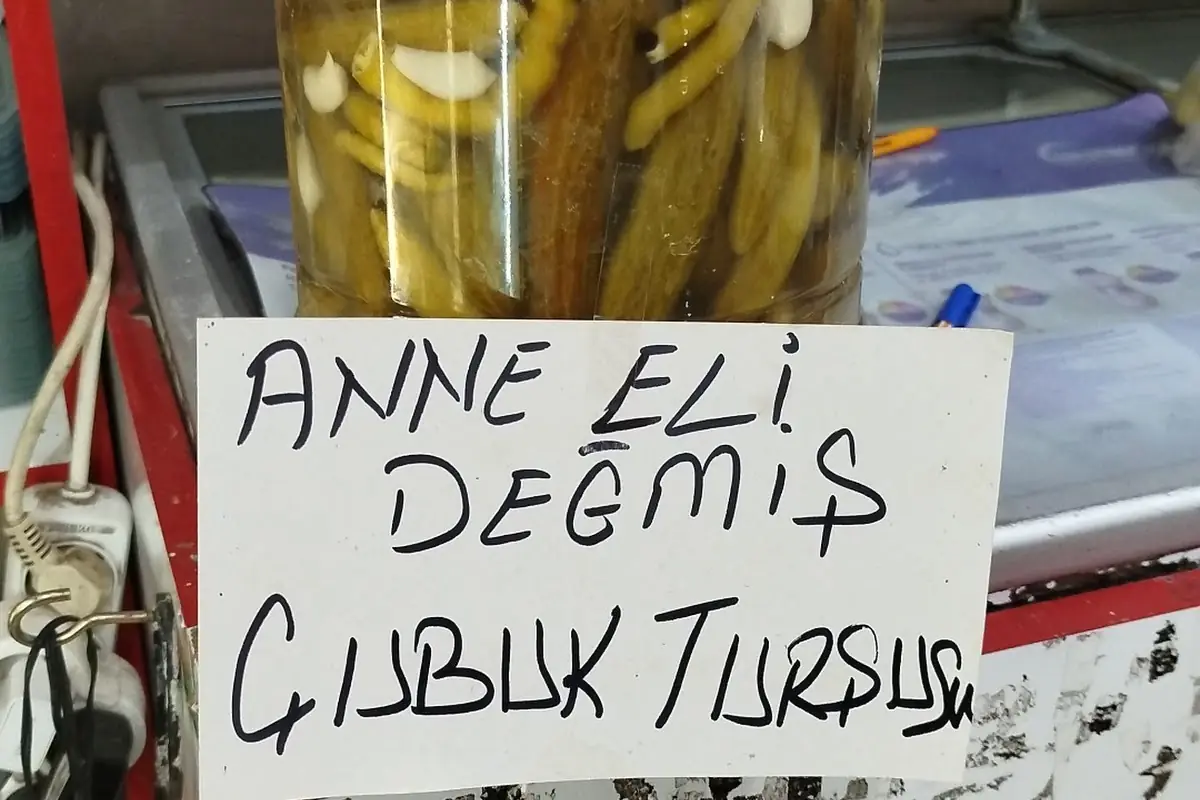 ANNE ELİ
DEĞMİŞ
ÇUBUK TURŞUSu